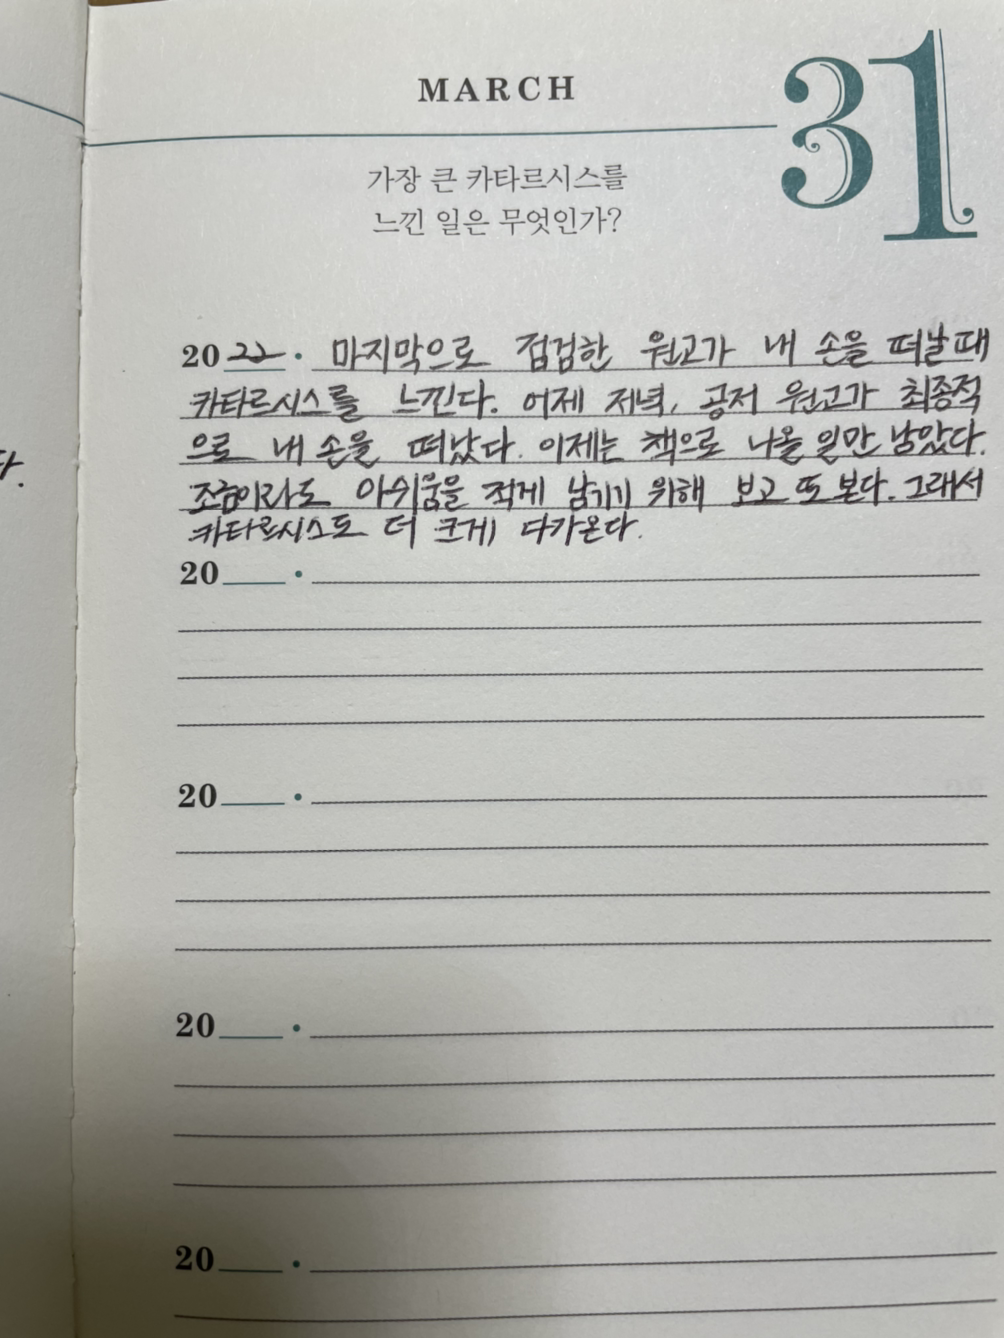 MARCH
31
가장 큰 카타르시스를
느낀 일은 무엇인가?
2022 · 마지막으로 점검한 원고가 내 손을 떠날때
카타르시스를 느낀다. 어제 저녁, 공저 원고가 최종적
으로 내 손을 떠났다. 이제는 책으로 나올 일만 남았다.
조금이라도 아쉬움을 적게 남기기 위해 보고 또 본다. 그래서
카타르시스도 더 크게 다가온다.
다.
20 ·
20 ·
20 ·
20 ·